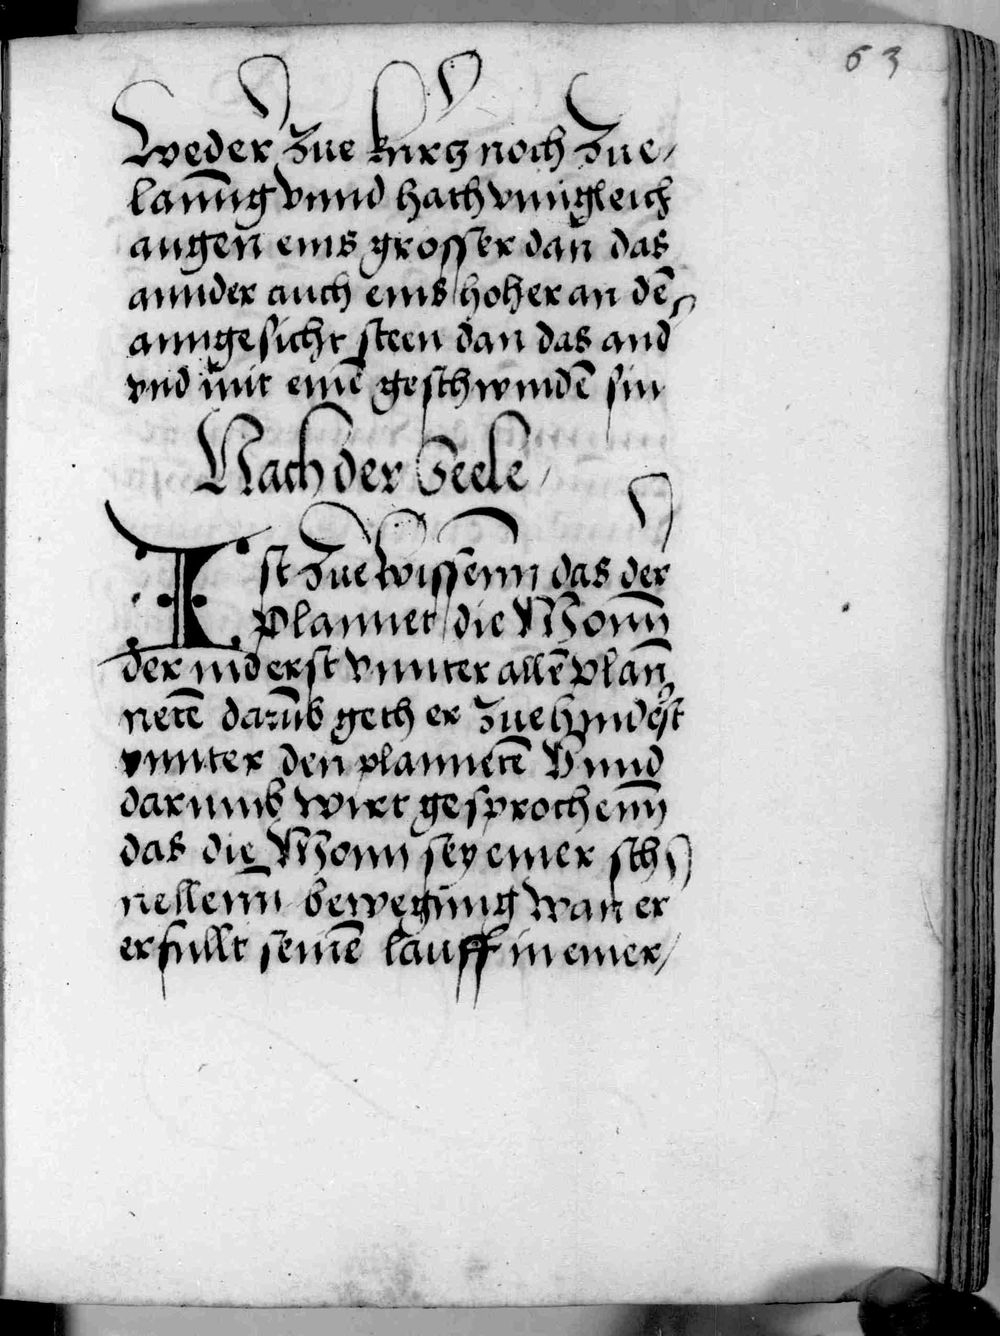 63
Weder Zue kurcz noch Zue/
lanng vnnd hath vnngleich
augen eins grosser dan das
annder auch eins hoher an dē
anngesicht steen dan das and
vnd mit einē geschwindē sin
Nach der Seele/
Ist Zue wissenn das der
Plannet die Monn
der niderst vnnter allē plan̄
netē darumb geth er Zue hindest
vnnter den plannetē Vnnd
darumb wirt gesprochenn
das die Monn sey einer sch
nellenn bewegung wan er
erfullt seinē lauff in einer/